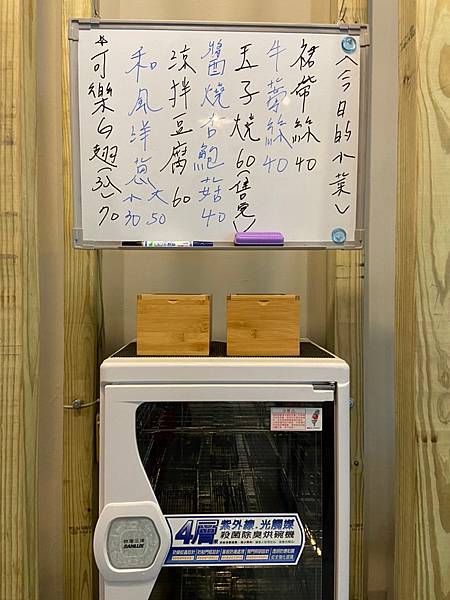 <今日的小菜>
裙帶絲 40
牛蒡絲 40
玉子燒 60(售完)
醬燒杏鮑菇 40
涼拌豆腐 60
和風洋蔥 小30 大50
*可樂白翅(3入) 70
4層
紫外線.光觸媒
殺菌除臭烘碗機
台灣三洋
SANLUX